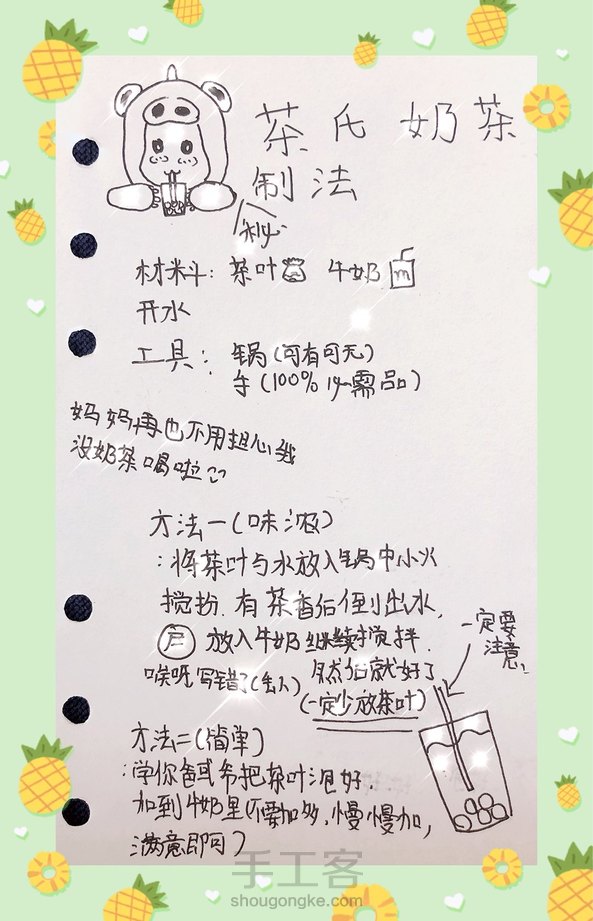 茶氏奶茶
制法
秘
材料：茶叶 牛奶 m
开水
工具：锅(可有可无)
手(100%必需品)
妈妈再也不用担心我
没奶茶喝啦
方法一(味浓)
：将茶叶与水放入锅中小火
搅扮.有茶香后倒出水,
后 放入牛奶继续搅拌.
唉呀写错了(丢人) 然后就好了
(一定少放茶叶)
一定要
注意!
方法二(简单)
：学你爸或爷把茶叶泡好.
加到牛奶里(不要加多,慢慢加,
满意即可)
手工客
shougongke.com